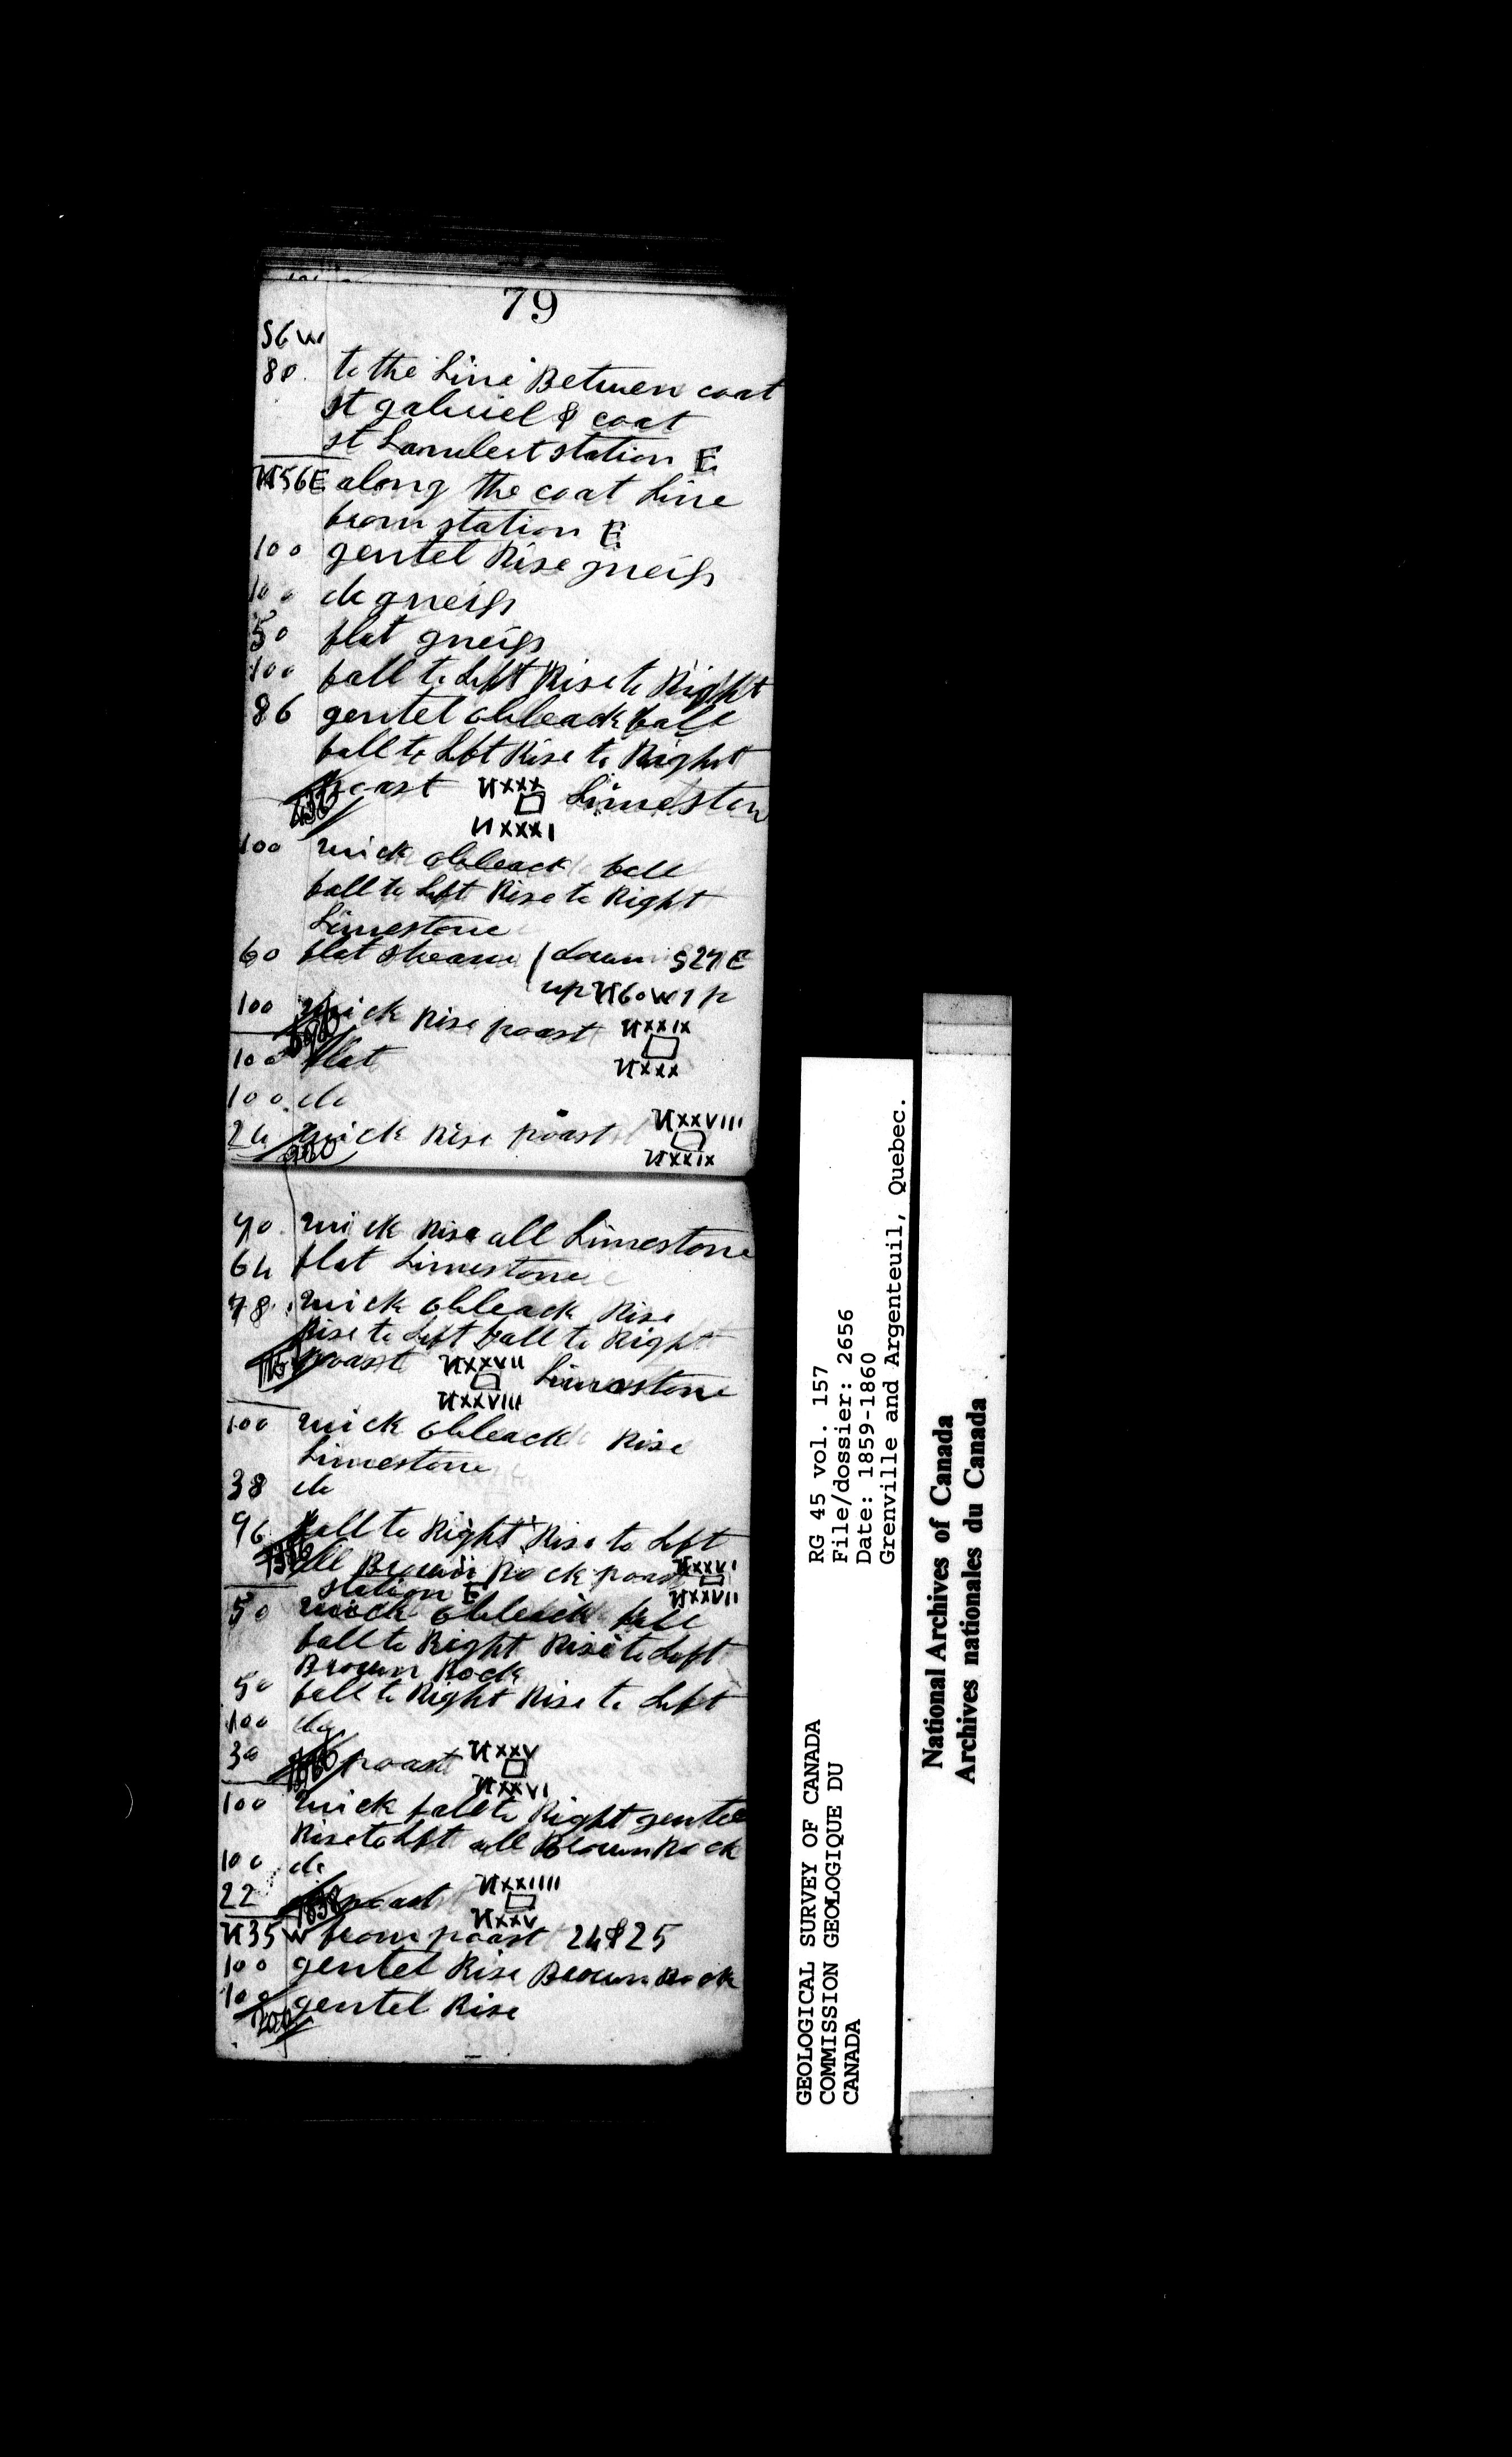 79
S6W
80 to the Line Betwen coat
st gabriel & coat
st Lambert station E
N56E along the coat Line
from station E
100 gentel Rise gneiss
100 do gneiss
50 flat gneiss
100 fall to Left Rise to Right
86 gentel obleack fall
fall to Left Rise to Right
poast NXXX Limeston
436 NXXXI
100 quick obleack fall
fall to Left Rise to Right
Limestone
60 flat stream (down S27E
up N60W 1 p
100 quick Rise poast NXXIX
NXXX
100 flat
100 do
24 quick Rise poast NXXVIII
NXXIX
70 quick Rise all Limestone
64 flat Limestone
78 quick obleack Rise
Rise to Left fall to Right
poast NXXVII Limestone
NXXVIII
100 quick obleack Rise
Limestone
38 do
96 fall to Right Rise to Left
all Brown Rock poast NXXVI
station E NXXVII
50 quick obleack fall
fall to Right Rise to Left
Brown Rock
50 fall to Right Rise to Left
100 do
30 poast NXXV
NXXVI
100 quick fall to Right gentel
Rise to Left all Brown Rock
100 do
22 poast NXXIIII
NXXV
N35W from poast 24 & 25
100 gentel Rise Brown Rock
100 gentel Rise
200
GEOLOGICAL SURVEY OF CANADA
COMMISSION GEOLOGIQUE DU
CANADA
RG 45 vol. 157
File/dossier: 2656
Date: 1859-1860
Grenville and Argenteuil, Quebec.
National Archives of Canada
Archives nationales du Canada